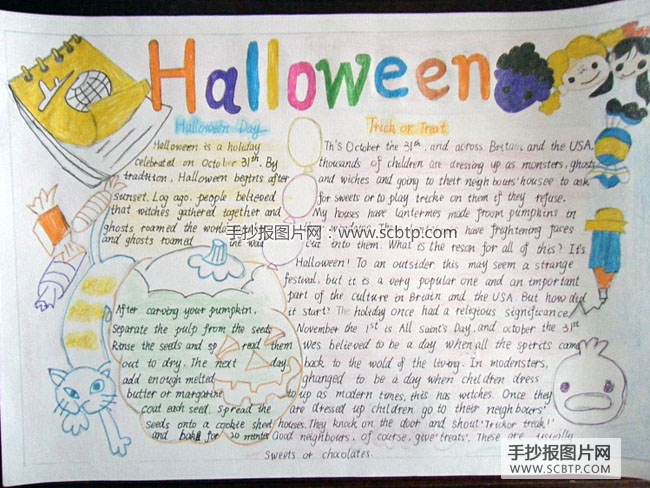 Halloween
Halloween Day
Halloween is a holiday
celebrated on October 31th. By
tradition, Halloween begins after
sunset. Log ago, people believed
that witches gathered together and
ghosts roamed the world
and ghosts roamed the wad
After carving your pumpkin,
Separate the pulp from the seeds
Rinse the seeds and sp read them
out to dry. The next day,
add enough melted
butter or margarine
coat each seed. Spread the
seeds onto a cookie sheet
and bake for 20 minutes
Trick or Treat
Th's October the 31th, and across Britain and the USA,
thousands of children are dressing up as monsters, ghosts
and wiches and going to their neighbours' housee to ask
for sweets or to play tricke on them if they refuse.
My houses have lantermes made from pumpkins in
have frightening faces
cut into them. What is the reson for all of this? It's
Halloween! To an outsider, this may seem a strange
festival, but it is a very popular one and an important
part of the culture in Briain and the USA. But how did
it start? The holiday once had a religious significance
November the 1st is All Saint's Day, and october the 31th
Wes believed to be a day when all the spirits came
back to the wold of the living. In modensters,
ghanged to be a day when children dress
to up as modern tones, this has witches. Once they
are dressed up children go to their neighbours'
houses. They knock on the door and shout 'Trickor treak!'
Good neighbours, of course, give 'treats'. These are usually
sweets or chocolates.
手抄报图片网：www.scbtp.com
手抄报图片网
WWW.SCBTP.COM